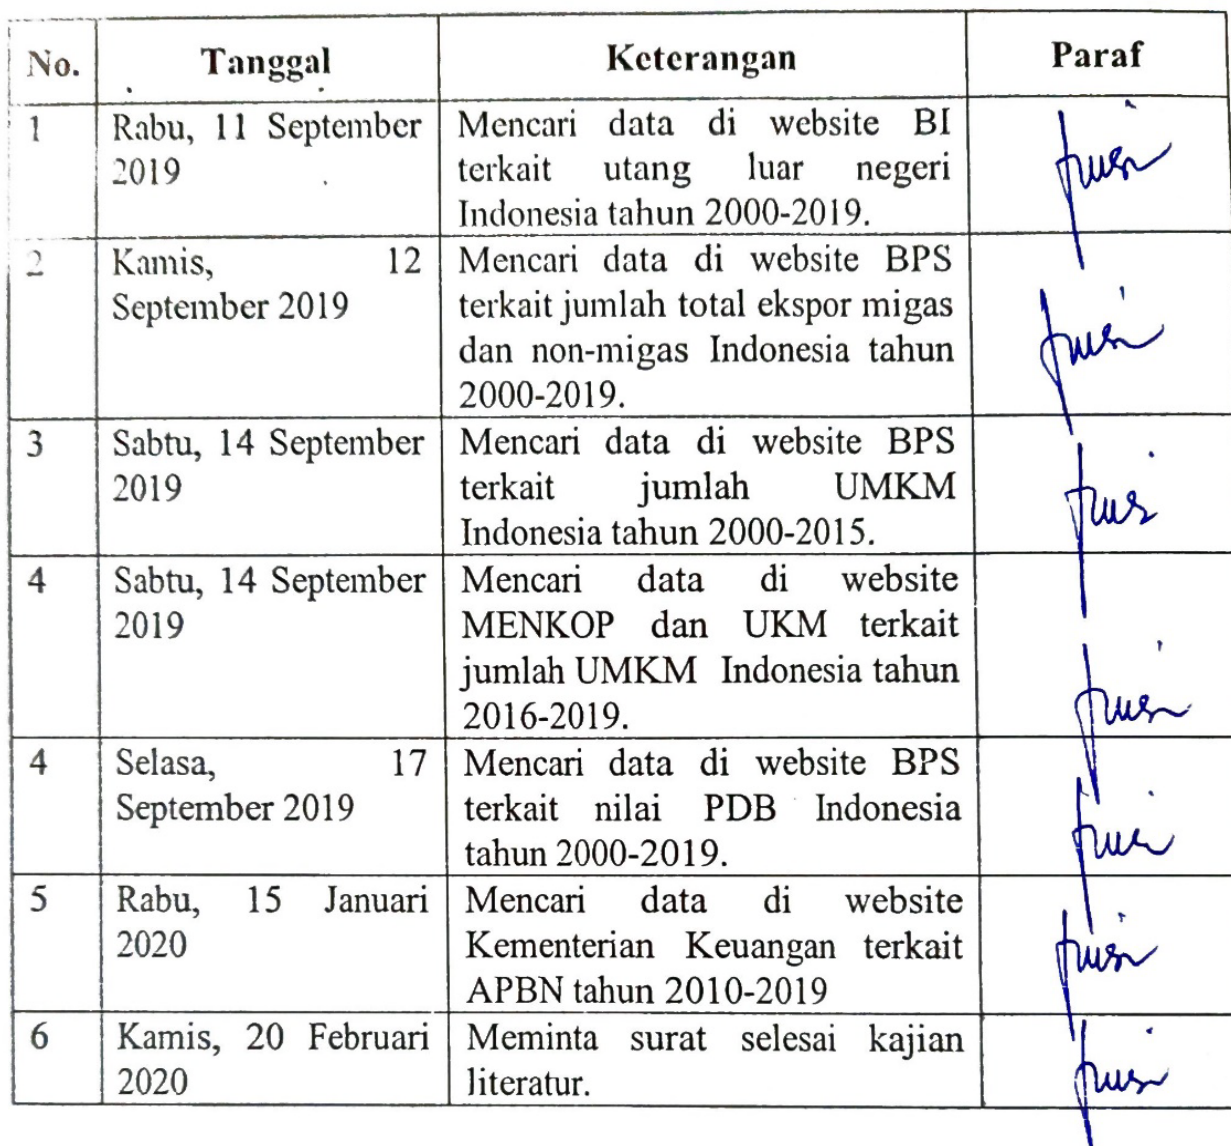 No. Tanggal Keterangan Paraf
1 Rabu, 11 September Mencari data di website BI
2019 terkait utang luar negeri
Indonesia tahun 2000-2019.
2 Kamis, 12 Mencari data di website BPS
September 2019 terkait jumlah total ekspor migas
dan non-migas Indonesia tahun
2000-2019.
3 Sabtu, 14 September Mencari data di website BPS
2019 terkait jumlah UMKM
Indonesia tahun 2000-2015.
4 Sabtu, 14 September Mencari data di website
2019 MENKOP dan UKM terkait
jumlah UMKM Indonesia tahun
2016-2019.
4 Selasa, 17 Mencari data di website BPS
September 2019 terkait nilai PDB Indonesia
tahun 2000-2019.
5 Rabu, 15 Januari Mencari data di website
2020 Kementerian Keuangan terkait
APBN tahun 2010-2019
6 Kamis, 20 Februari Meminta surat selesai kajian
2020 literatur.